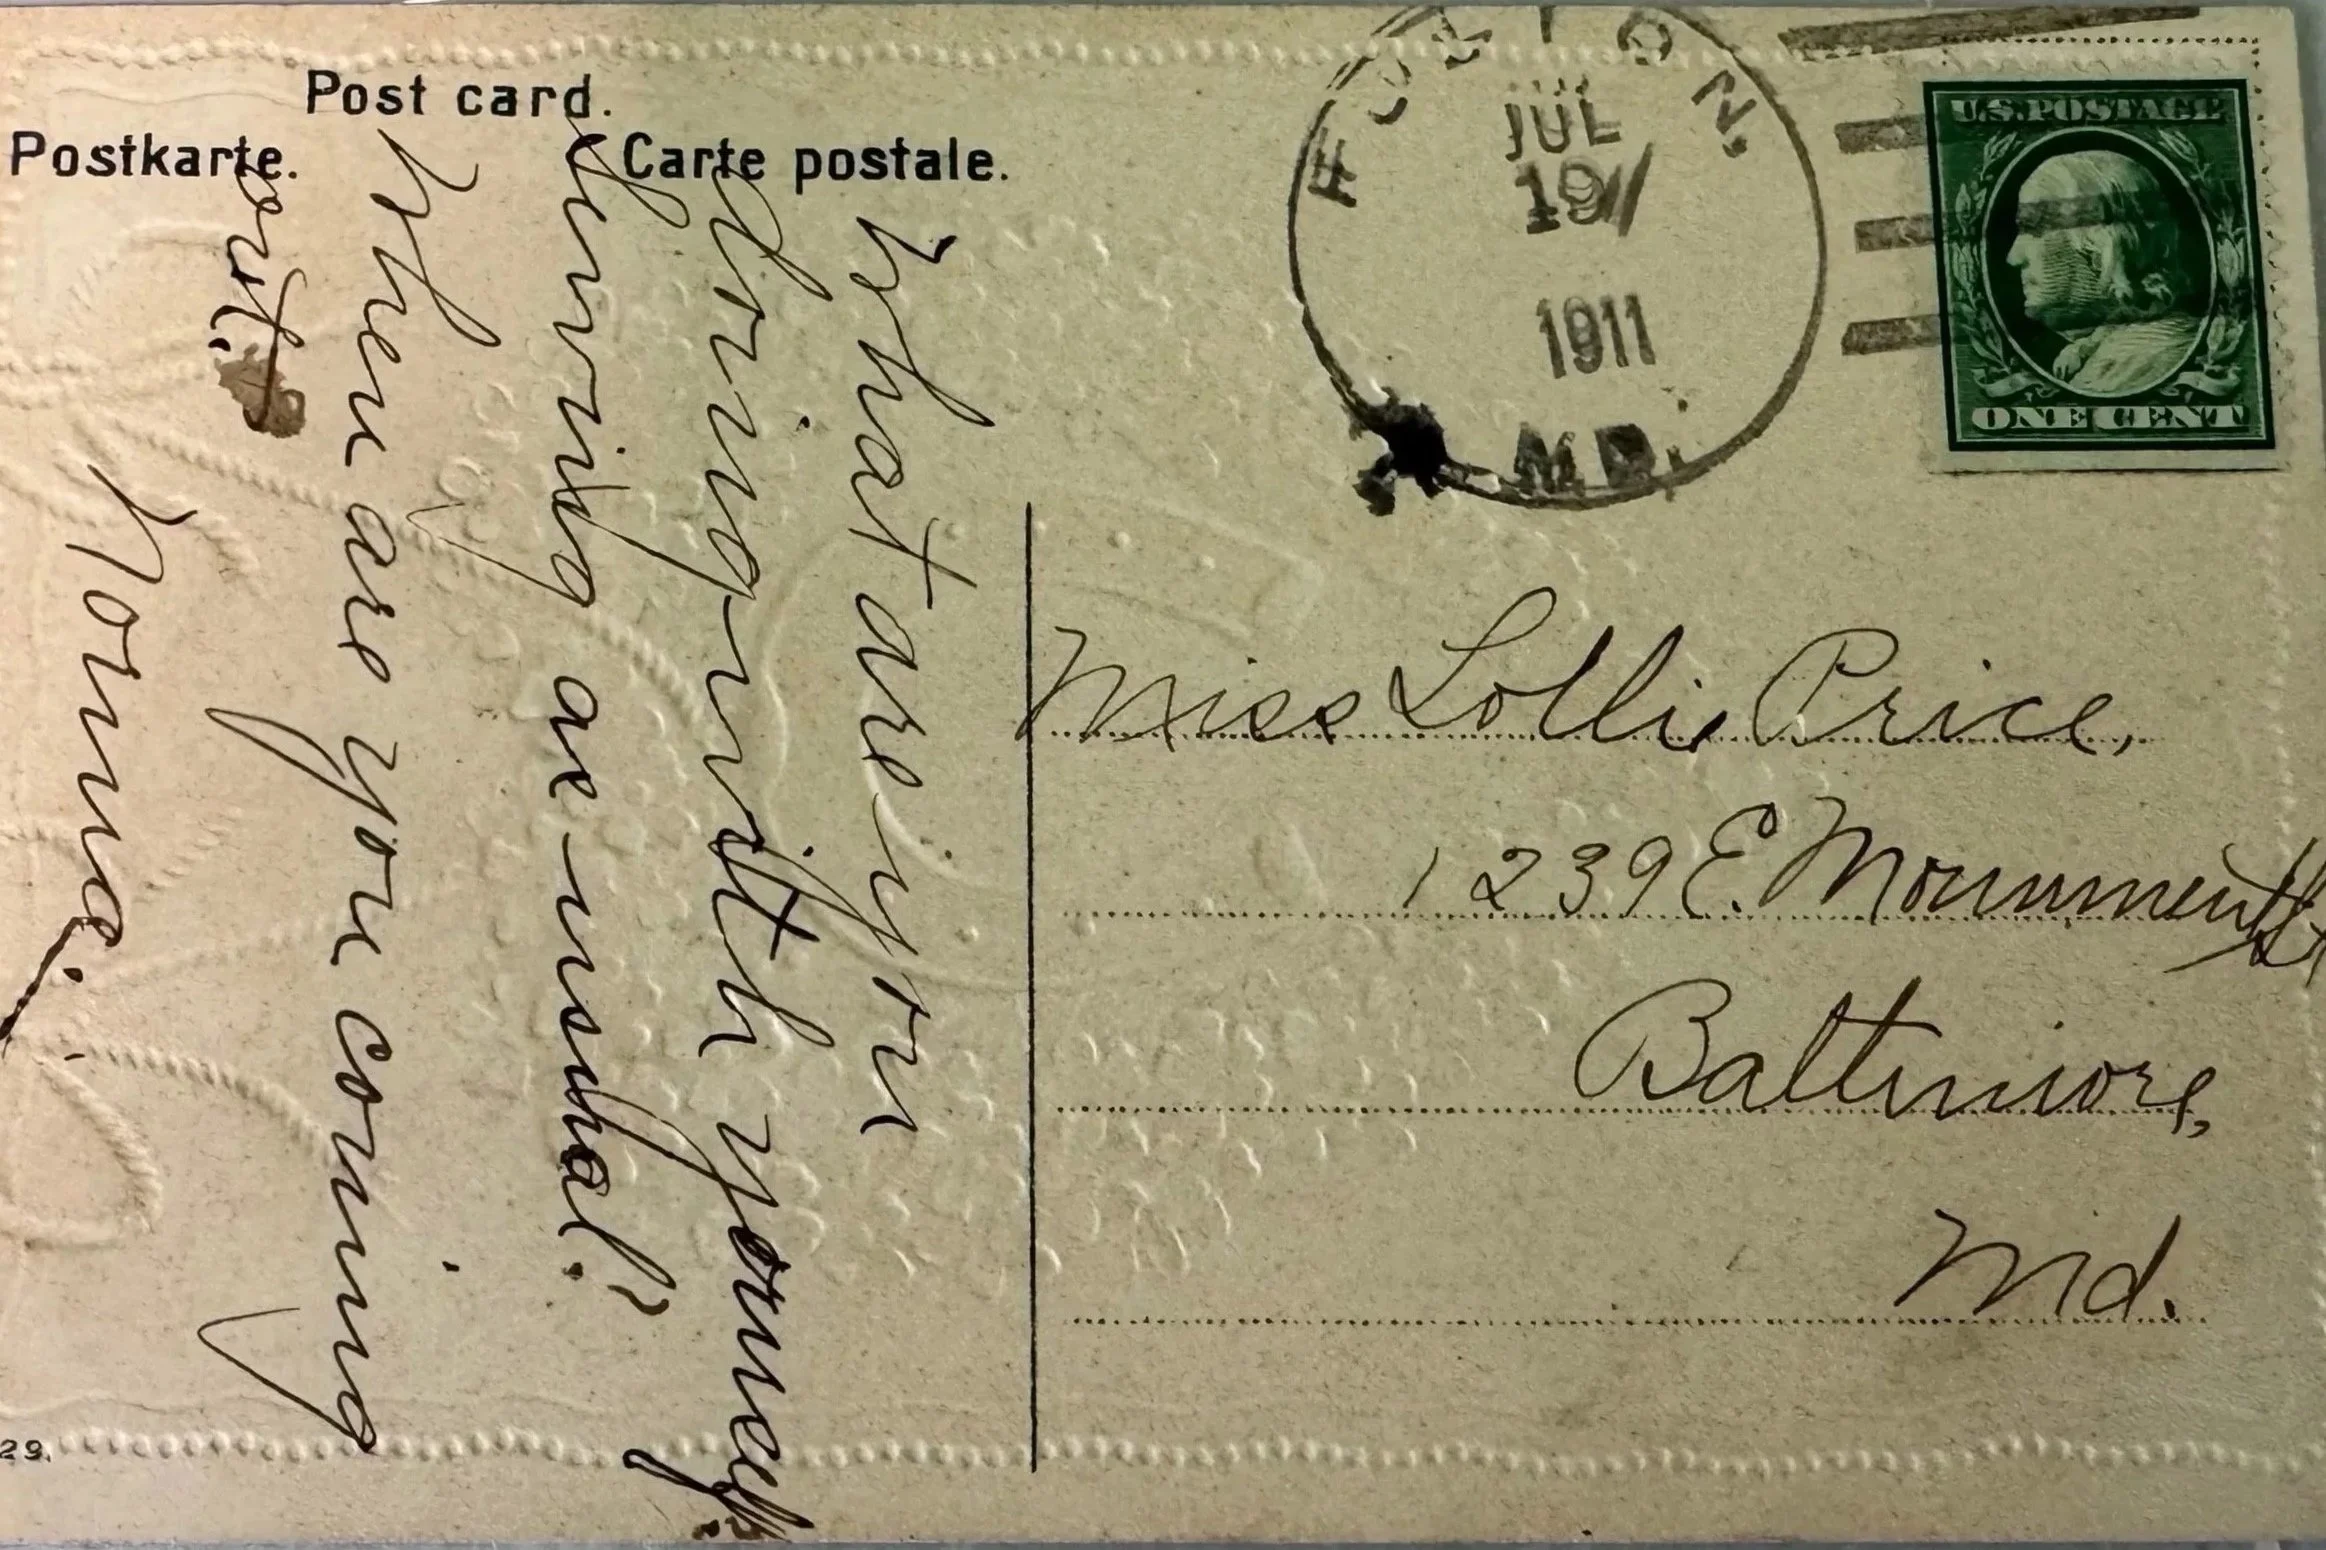 Post card.
Postkarte.
Carte postale.
What are you
doing with yourself
Serving as usual?
When are you coming
out.
Norma.
FULTON.
JUL
19
1911
MD.
U.S. POSTAGE
ONE CENT
Miss Lollie Price,
1239 E. Monument St,
Baltimore,
Md.
29.